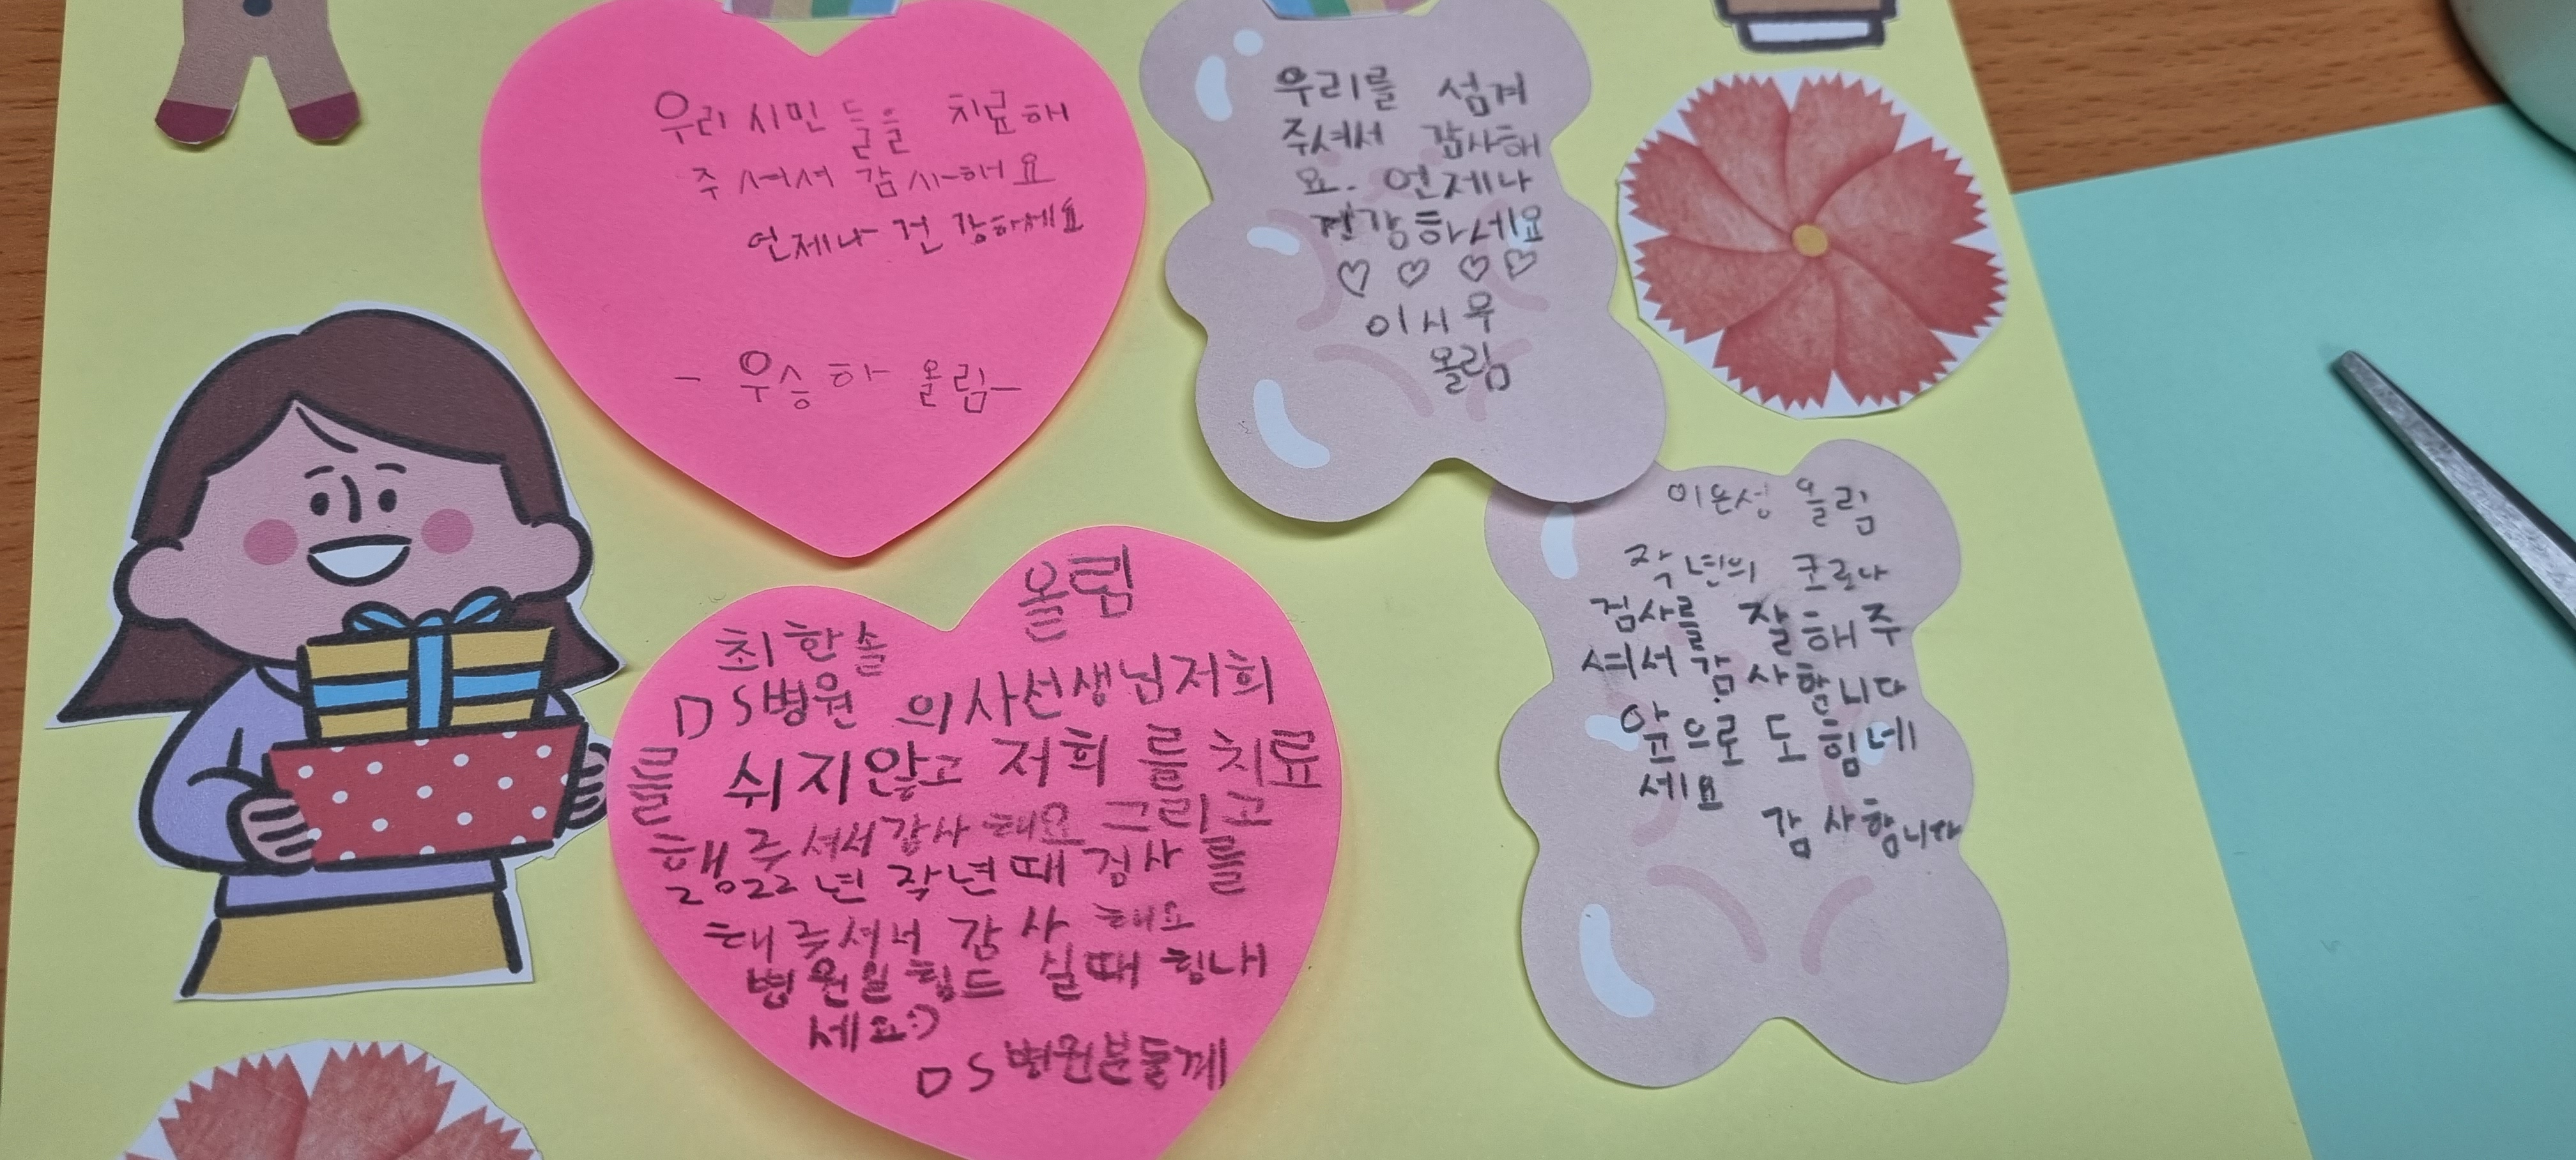 우리 시민들을 치료해
주셔서 감사해요
언제나 건강하세요
- 우승하 올림 -
우리를 섬겨
주셔서 감사해
요. 언제나
건강하세요
♡ ♡ ♡ ♡
이시우
올림
올림
최한솔
DS병원 의사선생님저희
를 쉬지않고 저희를 치료
해주셔서감사해요 그리고
2022년 작년때 검사를
해주셔서 감사해요
병원일힘드실때 힘내
세요:)
DS병원분들께
이은성 올림
작년의 코로나
검사를 잘해주
셔서 감사합니다
앞으로도 힘네
세요
감사합니다